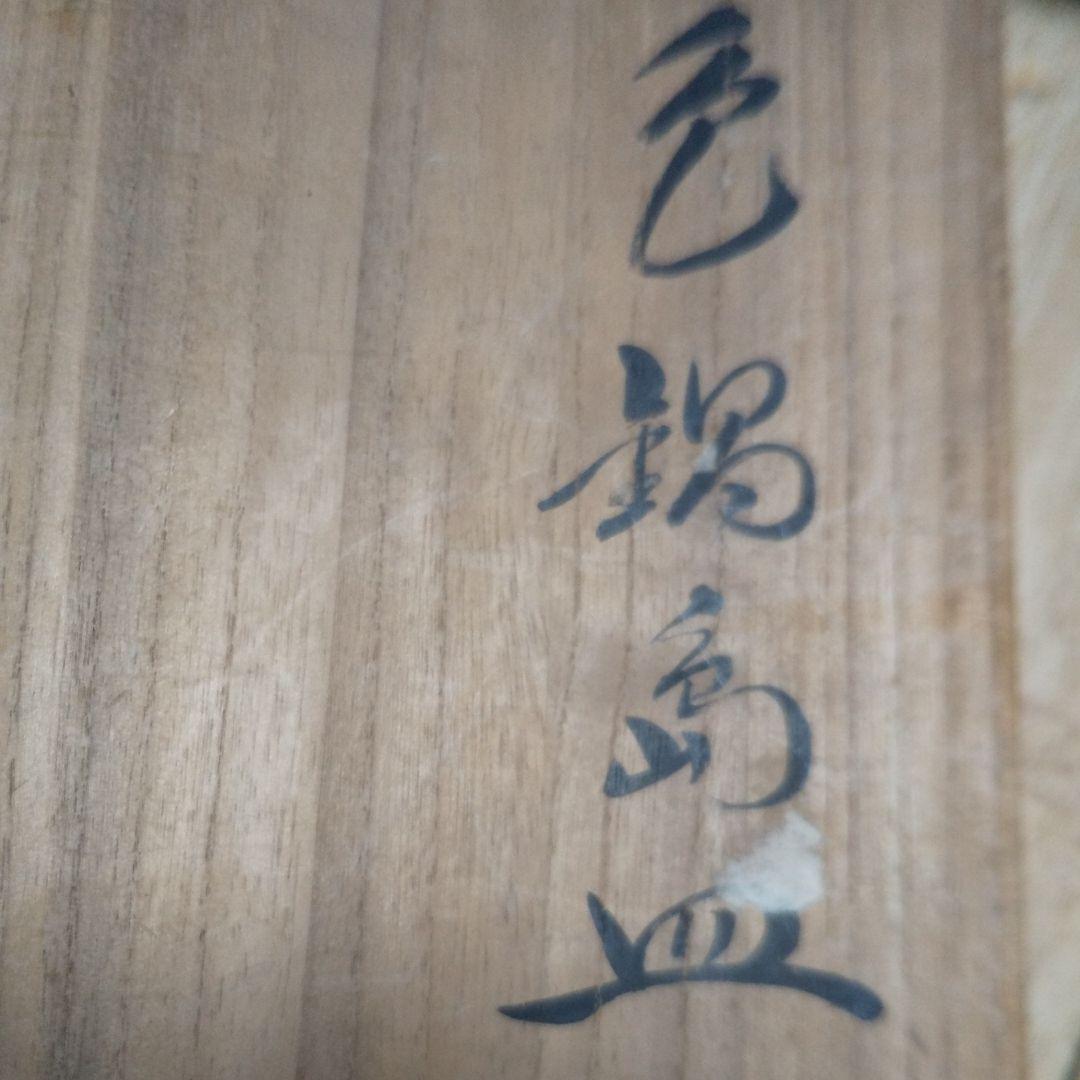 色鍋島皿